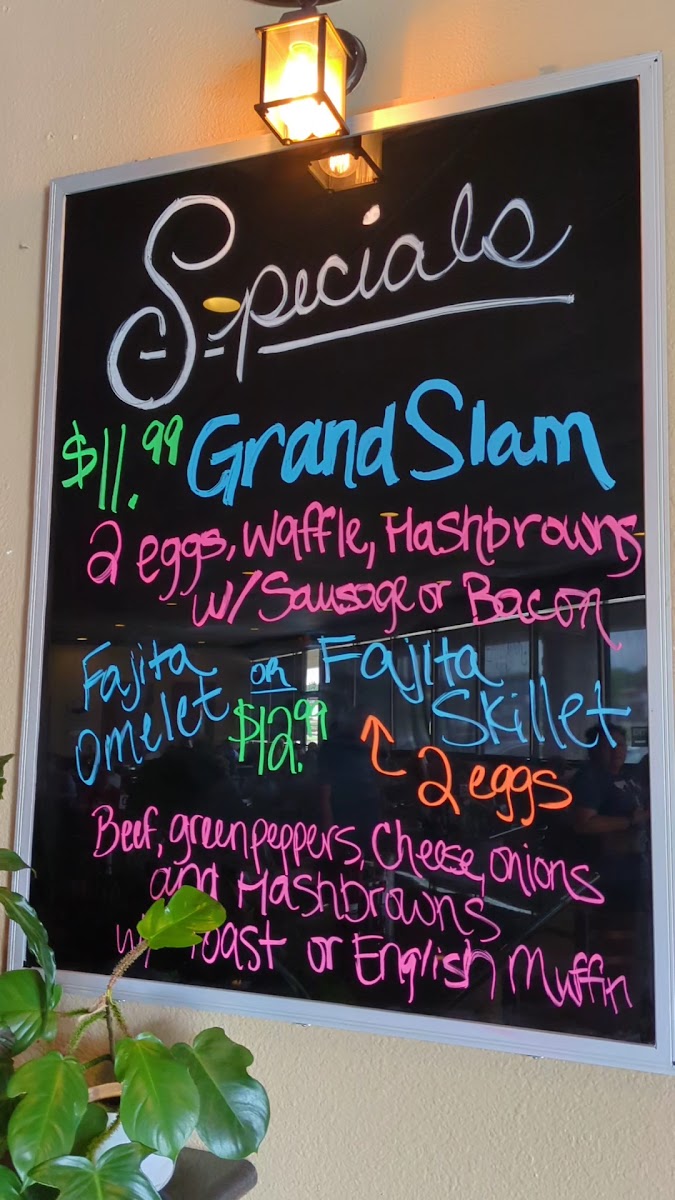 Specials
$11.99 Grand Slam
2 eggs, Waffle, Hashbrowns
w/ Sausage or Bacon
Fajita Omelet OR Fajita Skillet
$12.99
2 eggs
Beef, green peppers, Cheese, onions
and Hashbrowns
w/ Toast or English Muffin